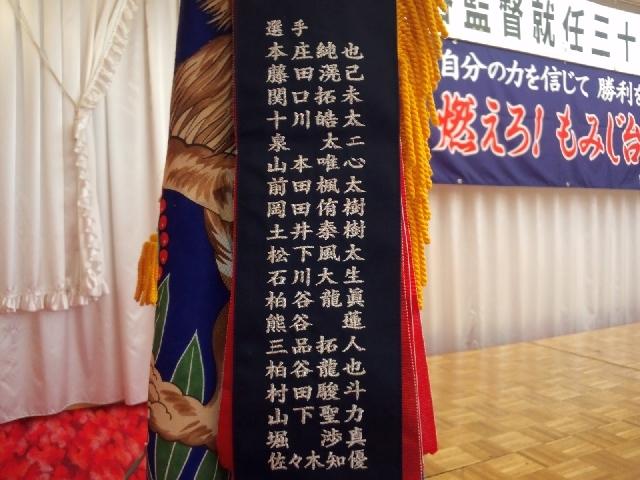 選手
本庄 純也
藤田 滉己
関口 拓未
十川 皓太
泉 太二
山本 唯心
前田 楓太
岡田 侑樹
土井 泰樹
松下 風太
石川 大生
柏谷 龍眞
熊谷 蓮
三品 拓人
柏谷 龍也
村田 駿斗
山下 聖力
堀 渉真
佐々木知優
監督就任三十
自分の力を信じて 勝利を
燃えろ! もみじ台